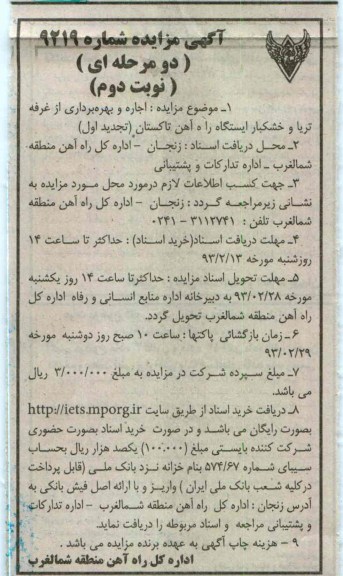 آگهی مزایده شماره ۹۲۱۹
( دو مرحله ای )
( نوبت دوم)
۱ـ موضوع مزایده : اجاره و بهره‌برداری از غرفه
تریا و خشکبار ایستگاه را ه آهن تاکستان (تجدید اول)
۲ـ محـل دریافت اسـناد : زنجـان – اداره کل راه آهن منطقه
شمالغرب ـ اداره تدارکات و پشتیبانی
۳ـ جهت کسـب اطلاعات لازم درمورد محل مـورد مزایده به
نشـانی زیرمراجعـه گـردد : زنجـان – اداره کل راه آهن منطقه
شمالغرب تلفن : ۳۱۱۲۷۴۱ – ۰۲۴۱
۴ـ مهلت دریافت اسـناد(خرید اسـناد) : حداکثر تا سـاعت ۱۴
روزشنبه مورخه ۹۳/۲/۱۳
۵ـ مهلت تحویل اسناد مزایده : حداکثرتا ساعت ۱۴ روز یکشنبه
مورخه ۹۳/۰۲/۲۸ به دبیرخانه اداره منابع انسـانی و رفاه اداره کل
راه آهن منطقه شمالغرب تحویل گردد.
۶ ـ زمان بازگشائی پاکتها : ساعت ۱۰ صبح روز دوشنبه مورخه
۹۳/۰۲/۲۹
۷ـ مبلغ سـپرده شـرکت در مزایده به مبلغ ۳/۰۰۰/۰۰۰ ریال
می باشد.
۸ـ دریافت خرید اسناد از طریق سایت http://iets.mporg.ir
بصورت رایگان می باشـد و در صورت خرید اسناد بصورت حضوری
شـرکت کننده بایسـتی مبلغ (۱۰۰.۰۰۰) یکصد هزار ریال بحساب
سـیبای شـماره ۵۷۴/۶۷ بنام خزانه نـزد بانک ملـی (قابل پرداخت
درکلیه شـعب بانک ملی ایران ) واریـز و با ارائه اصل فیش بانکی به
آدرس زنجان : اداره کل راه آهن منطقه شـمالغرب – اداره تدارکات
و پشتیبانی مراجعه و اسناد مربوطه را دریافت نماید.
۹ – هزینه چاپ آگهی به عهده برنده مزایده می باشد .
اداره کل راه آهن منطقه شمالغرب